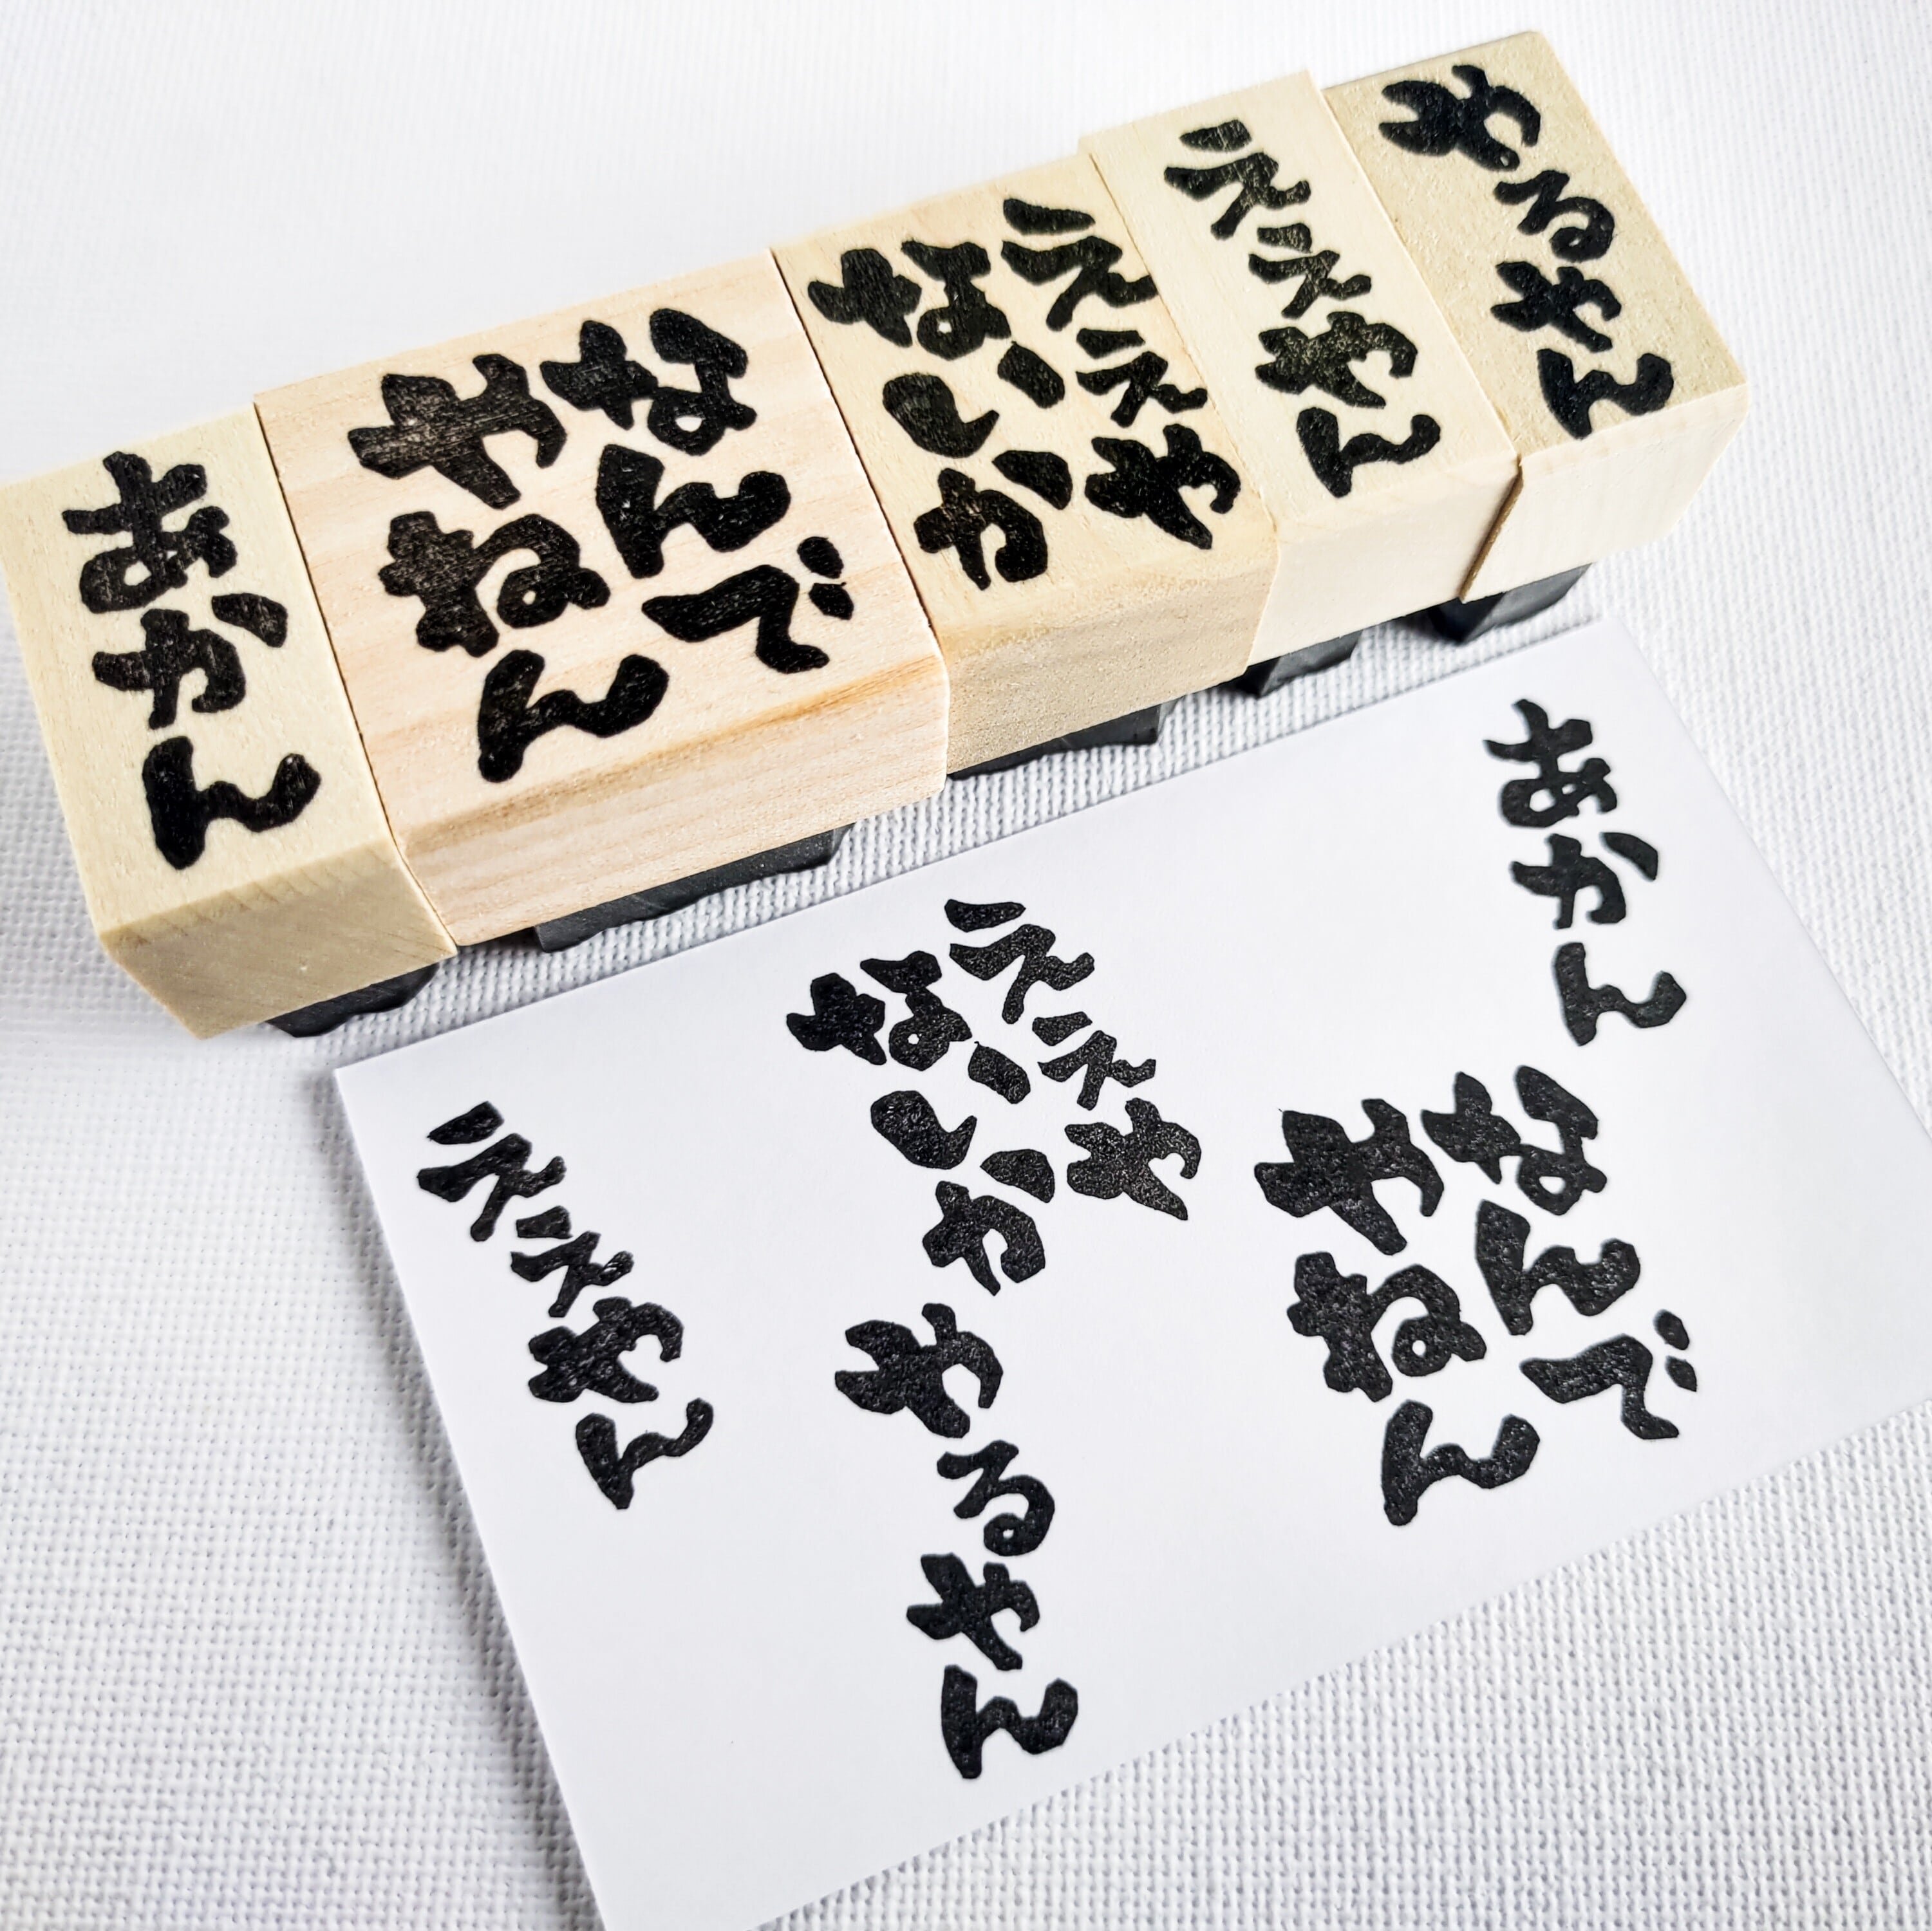 あかん
なんで
やねん
ええや
ないか
ええやん
やるやん
あかん
なんで
やねん
ええや
ないか
やるやん
ええやん